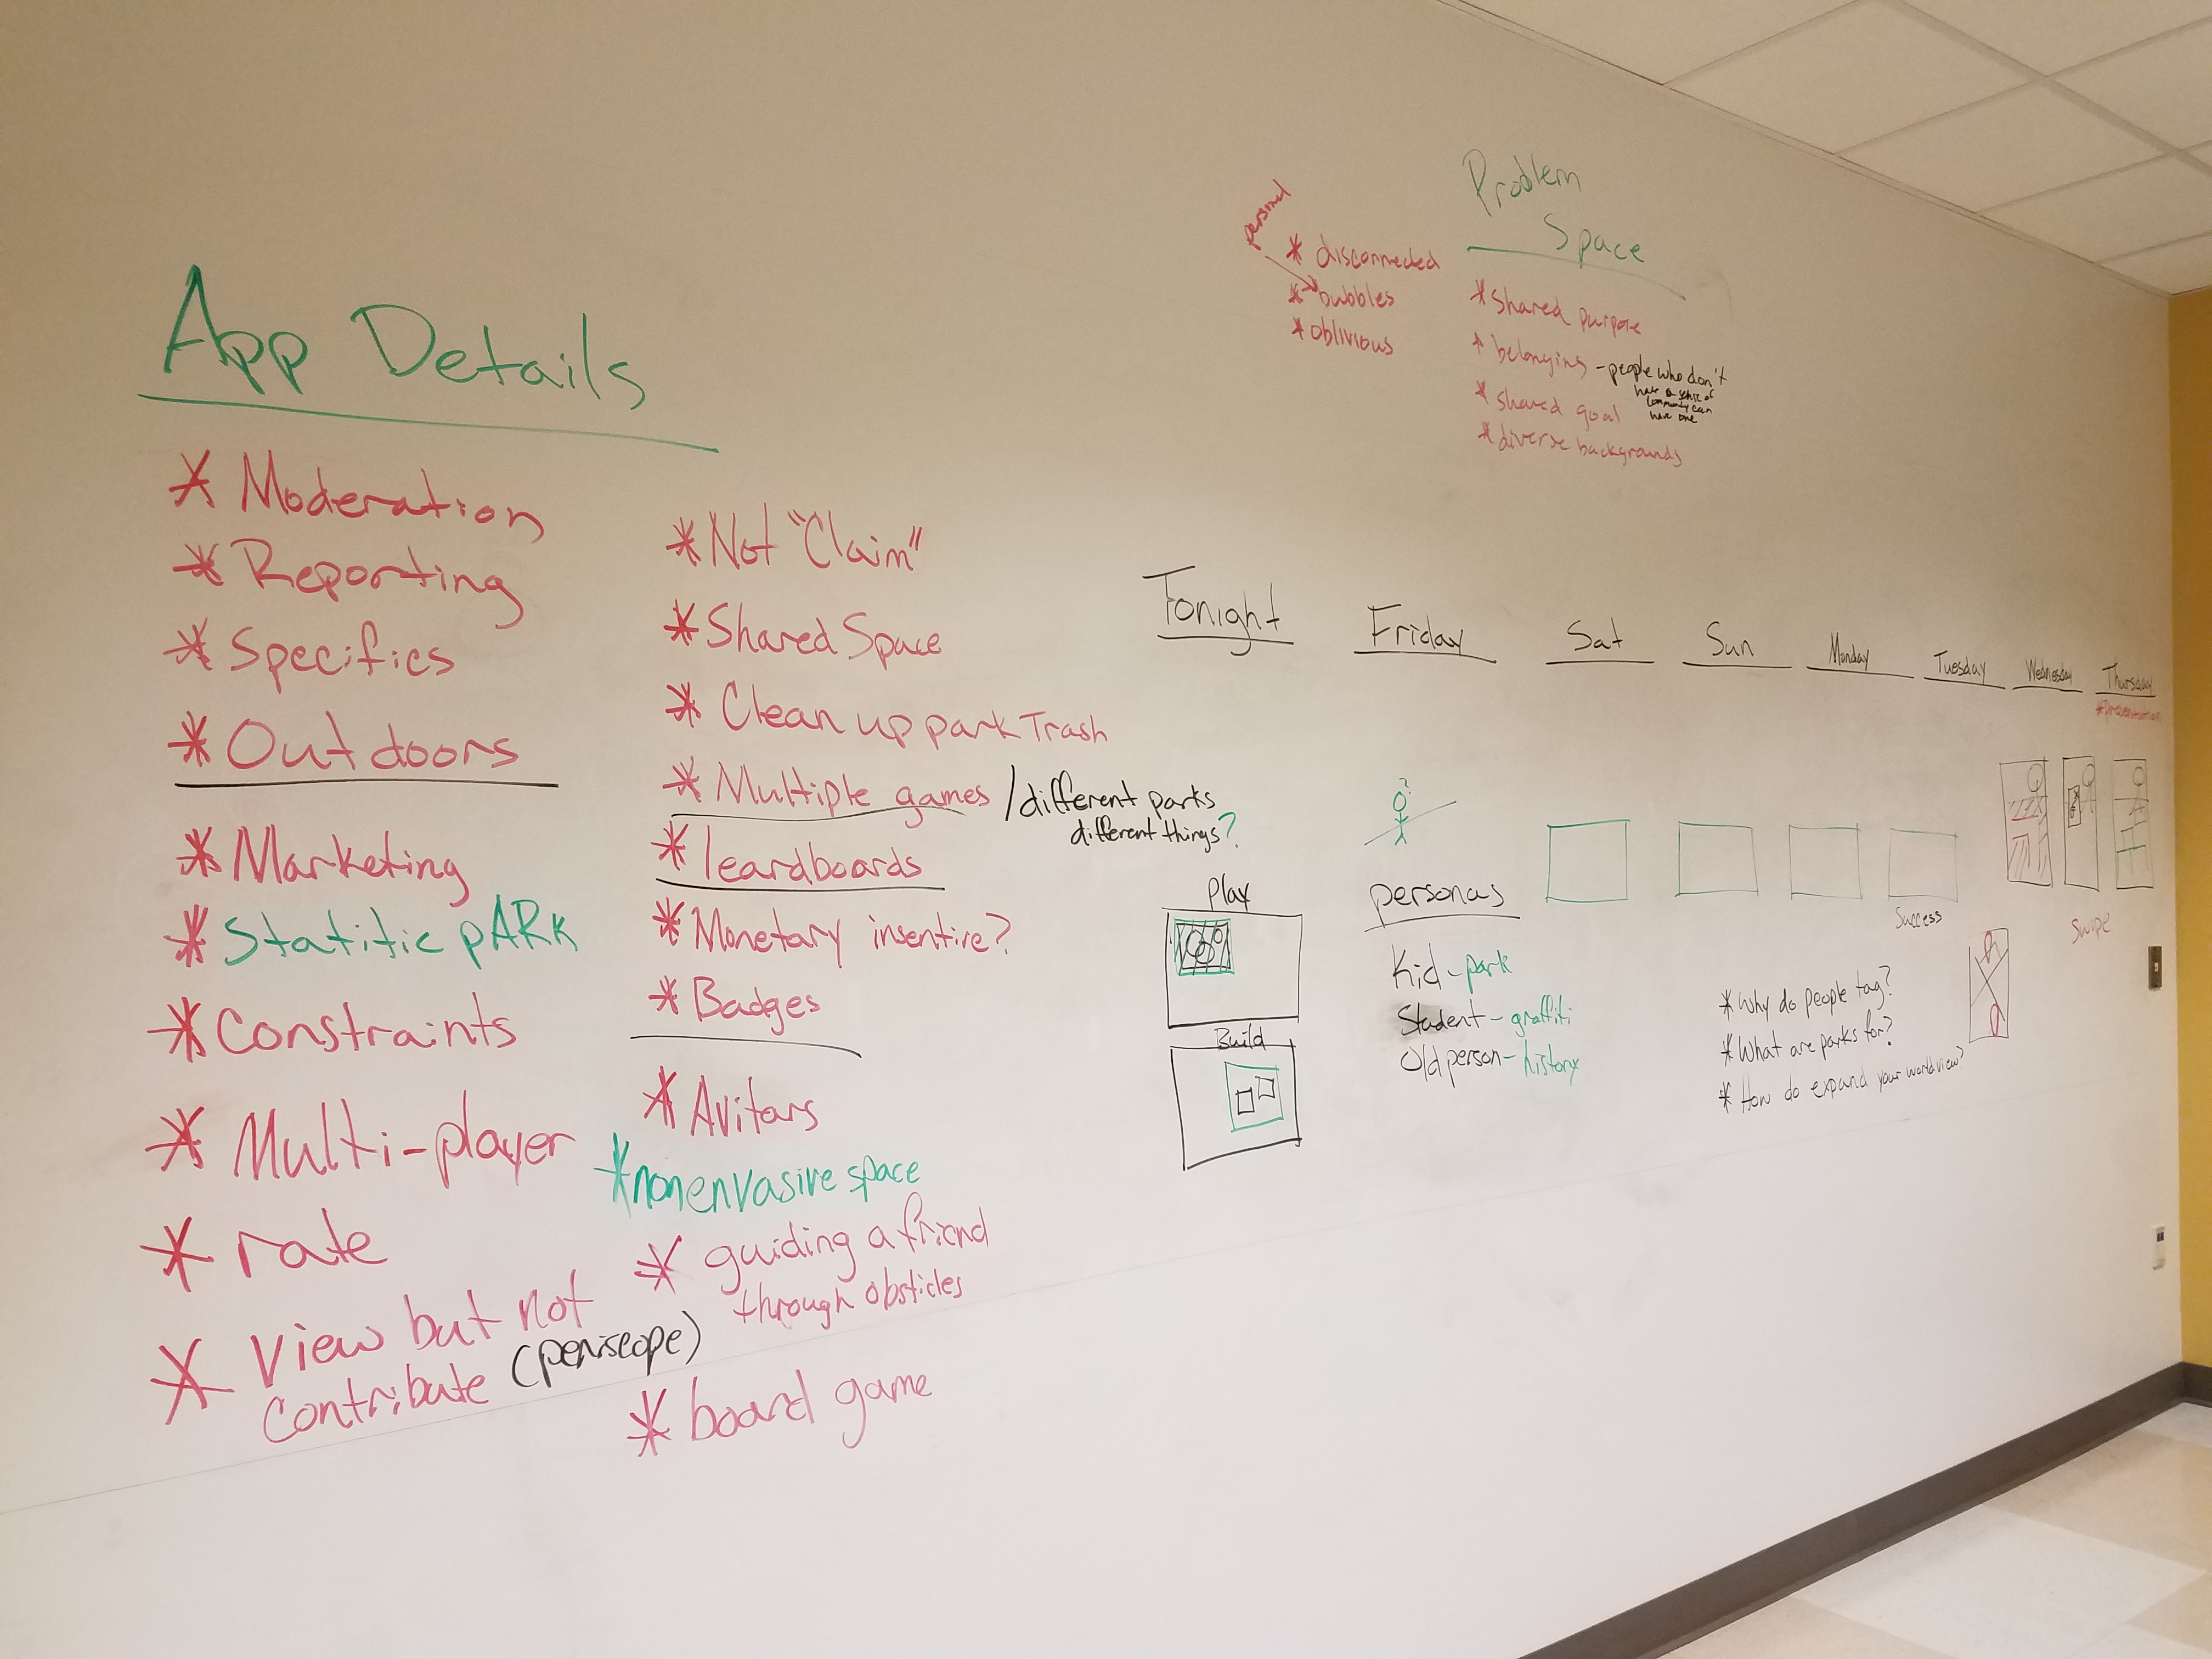 App Details
* Moderation
* Reporting
* Specifics
* Outdoors
* Marketing
* Statitic pARk
* Constraints
* Multi-player
* rate
* View but not
contribute (periscope)
* Not "Claim"
* Shared Space
* Clean up park Trash
* Multiple games / different parks
different things?
* leardboards
* Monetary insentive?
* Badges
* Avitars
* nonenvasive space
* guiding a friend
through obsticles
* board game
Problem
Space
personal
* disconnected
* bubbles
* oblivious
* shared purpose
* belonging - people who don't
have a sense of
community can
have one
* shared goal
* diverse backgrounds
Tonight
Friday
Sat
Sun
Monday
Tuesday
Wednesday
Thursday
* Presentation
Play
Build
?
personas
Kid - park
Student - graffiti
Old person - history
Success
Swipe
* Why do people tag?
* What are parks for?
* How do expand your worldview?